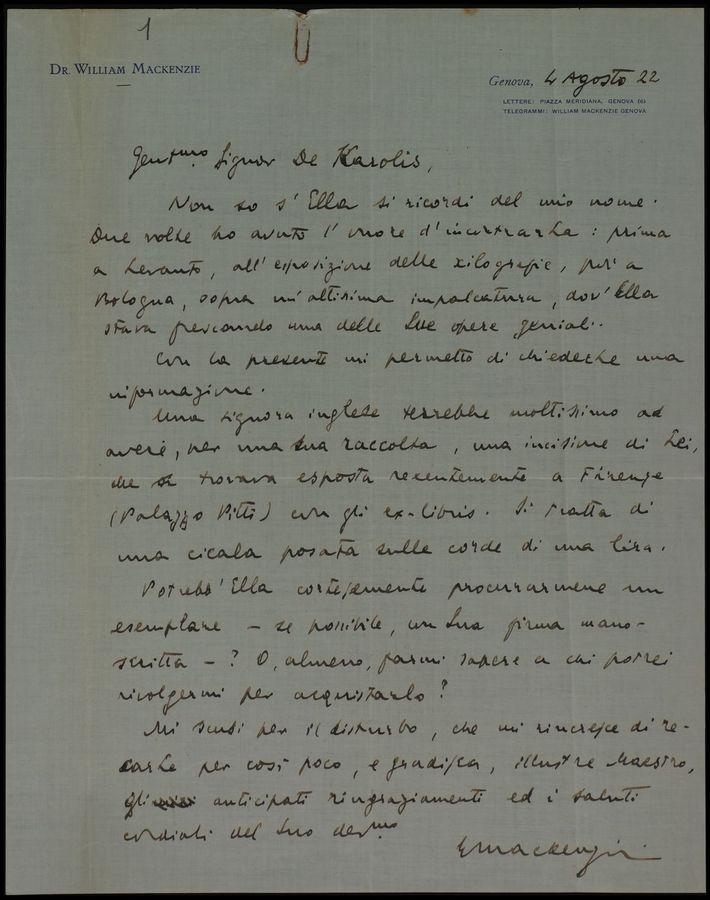 1
DR. WILLIAM MACKENZIE
Genova, 4 Agosto 22
LETTERE: PIAZZA MERIDIANA, GENOVA (6)
TELEGRAMMI: WILLIAM MACKENZIE GENOVA
Gentmo. Signor De Karolis,
Non so s' Ella si ricordi del mio nome.
Due volte ho avuto l' onore d' incontrarLa: prima
a Levanto, all' esposizione delle xilografie, poi a
Bologna, sopra un' altissima impalcatura, dov' Ella
stava frescando una delle Sue opere geniali.
Con la presente mi permetto di chiederLe una
informazione.
Una signora inglese terrebbe moltissimo ad
avere, per una sua raccolta, una incisione di Lei,
che si trovava esposta recentemente a Firenze
(Palazzo Pitti) con gli ex-libris. Si tratta di
una cicala posata sulle corde di una lira.
Potrebb' Ella cortesemente procurarmene un
esemplare – se possibile, con Sua firma mano-
scritta – ? O, almeno, farmi sapere a chi potrei
rivolgermi per acquistarlo?
Mi scusi per il disturbo, che mi rincresce di re-
carLe per così poco, e gradisca, illustre Maestro,
gli anticipati ringraziamenti ed i saluti
cordiali del Suo devmo
WMackenzie